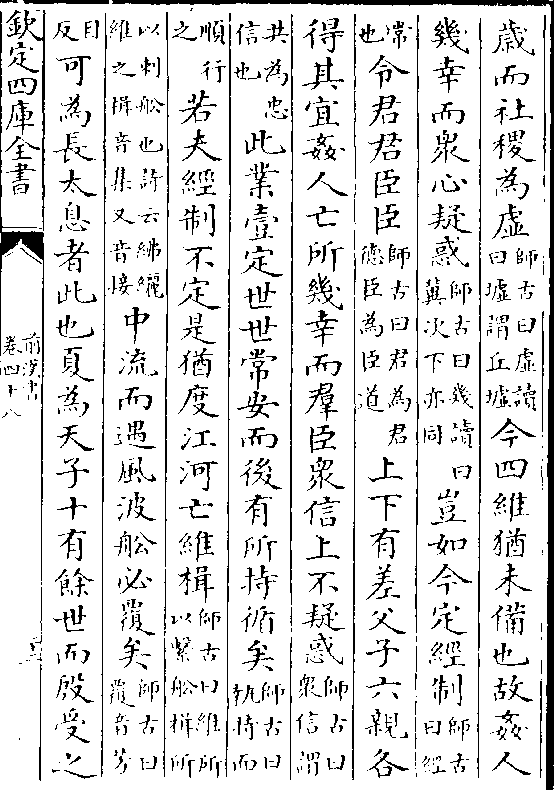 歲而社稷為虛師古曰虛讀曰墟謂丘墟今四維猶未備也故姦人
幾幸而衆心疑惑師古曰幾讀曰冀次下亦同豈如今定經制師古曰經
常也令君君臣臣師古曰君為君德臣為臣道上下有差父子六親各
得其宜姦人亡所幾幸而羣臣衆信上不疑惑師古曰衆信謂
共為忠信也此業壹定世世常安而後有所持循矣師古曰執持而
順行之若夫經制不定是猶度江河亡維楫師古曰維所以繫舩楫所
以刺舩也詩云紼纚維之楫音集又音接中流而遇風波舩必覆矣師古曰覆音芳
目反可為長太息者此也夏為天子十有餘世而殷受之
欽定四庫全書
前漢書
卷四十八